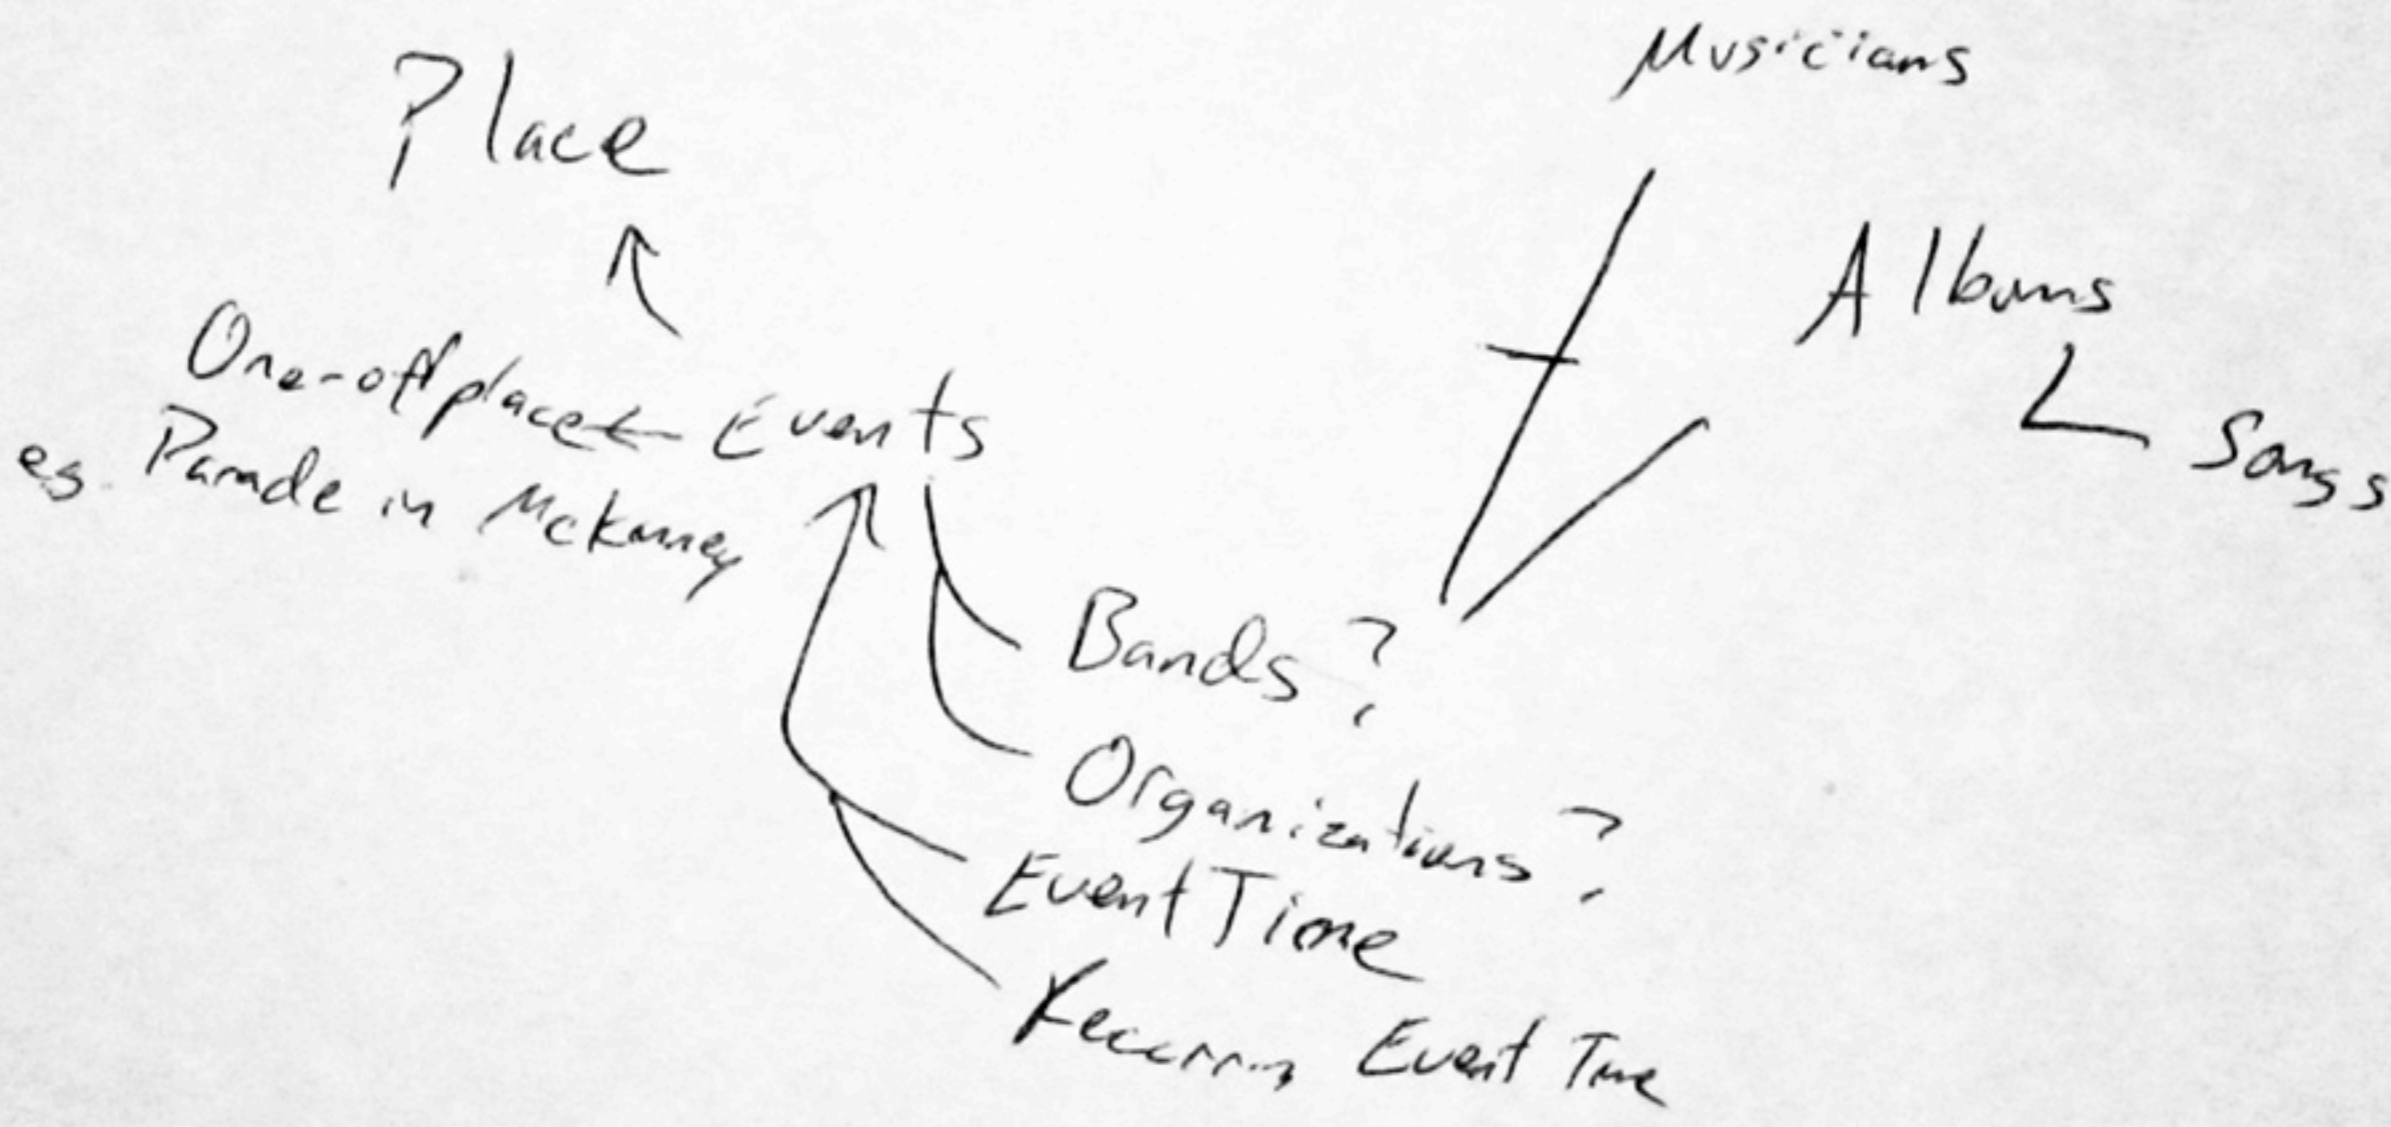 Musicians
Place
Albums
Songs
One-off place
Events
eg. Parade in McKinney
Bands ?
Organizations ?
Event Time
Recurring Event Time